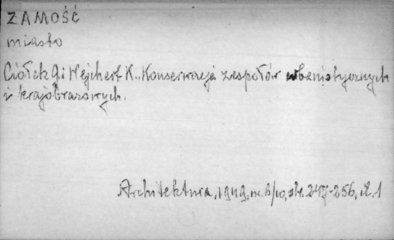 ZAMOŚĆ
miasto
Ciołek G. i Wejchert K.. Konserwacja zespołów urbanistycznych
i krajobrazowych.
Architektura, 1949, nr. 8/10, str. 247-256, il. 1